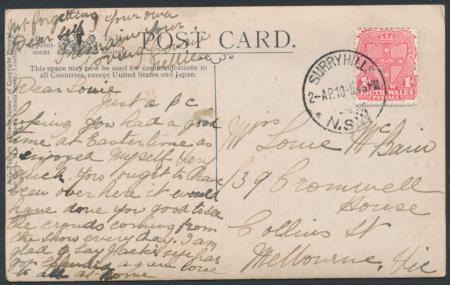 not forgetting your own
Dear self
POST CARD.
This space may now be used for communication to
all Countries, except United States and Japan.
Dear Louie
Just a P C
hoping you had a good
time at Eastertime as
I enjoyed Myself Very
Much. You ought to have
been over here it would
have done you good to see
the crouds coming from
the show every day. I am
glad to say Jack's eye has
got again love
to all at home
SURRY HILLS
2-AP.10
N.S.W
SOUTH WALES
POSTAGE
Mrs
Louie Mc Bain
139 Cromwell
House
Collins St
Melbourne, Vic